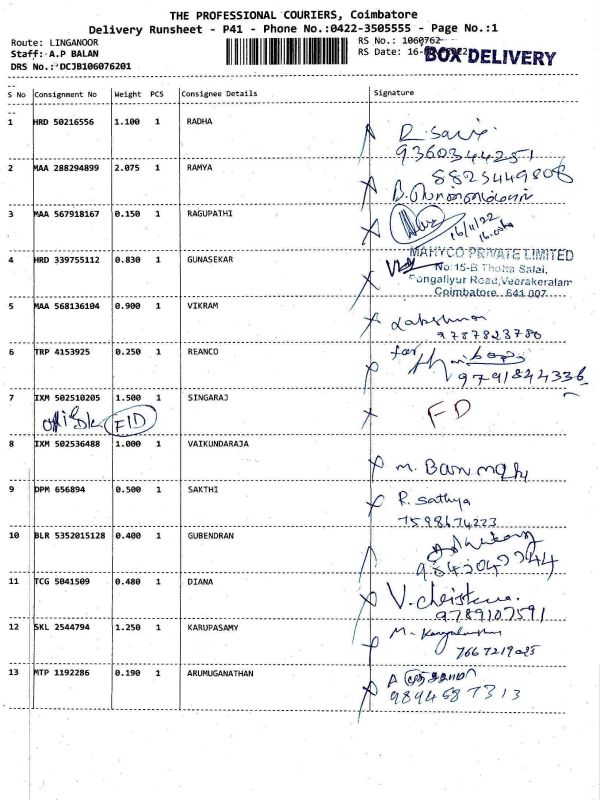 THE PROFESSIONAL COURIERS, Coimbatore
Delivery Runsheet - P41 - Phone No.:0422-3505555 - Page No.:1
Route: LINGANOOR
RS No.: 1060762
Staff: A.P BALAN
RS Date: 16-
BOX DELIVERY
DRS No.: DCJB106076201
S No Consignment No Weight PCS Consignee Details Signature
1 HRD 50216556 1.100 1 RADHA
9360344251
2 MAA 288294899 2.075 1 RAMYA
8825449808
3 MAA 567918167 0.150 1 RAGUPATHI
16/11/22
4 HRD 339755112 0.830 1 GUNASEKAR
MAHYCO PRIVATE LIMITED
No:15-B Thotta Salai,
Pongaliyur Road, Veerakeralam
Coimbatore 641 007
5 MAA 568136104 0.900 1 VIKRAM
Lakshmi
9787823780
6 TRP 4153925 0.250 1 REANCO
for
9791844336
7 IXM 502510205 1.500 1 SINGARAJ
F/D
FD
8 IXM 502536488 1.000 1 VAIKUNDARAJA
9 DPM 656894 0.500 1 SAKTHI
R. Sathya
7598674223
10 BLR 5352015128 0.400 1 GUBENDRAN
11 TCG 5041509 0.480 1 DIANA
9789107591
12 SKL 2544794 1.250 1 KARUPASAMY
7667219025
13 MTP 1192286 0.190 1 ARUMUGANATHAN
9894687313